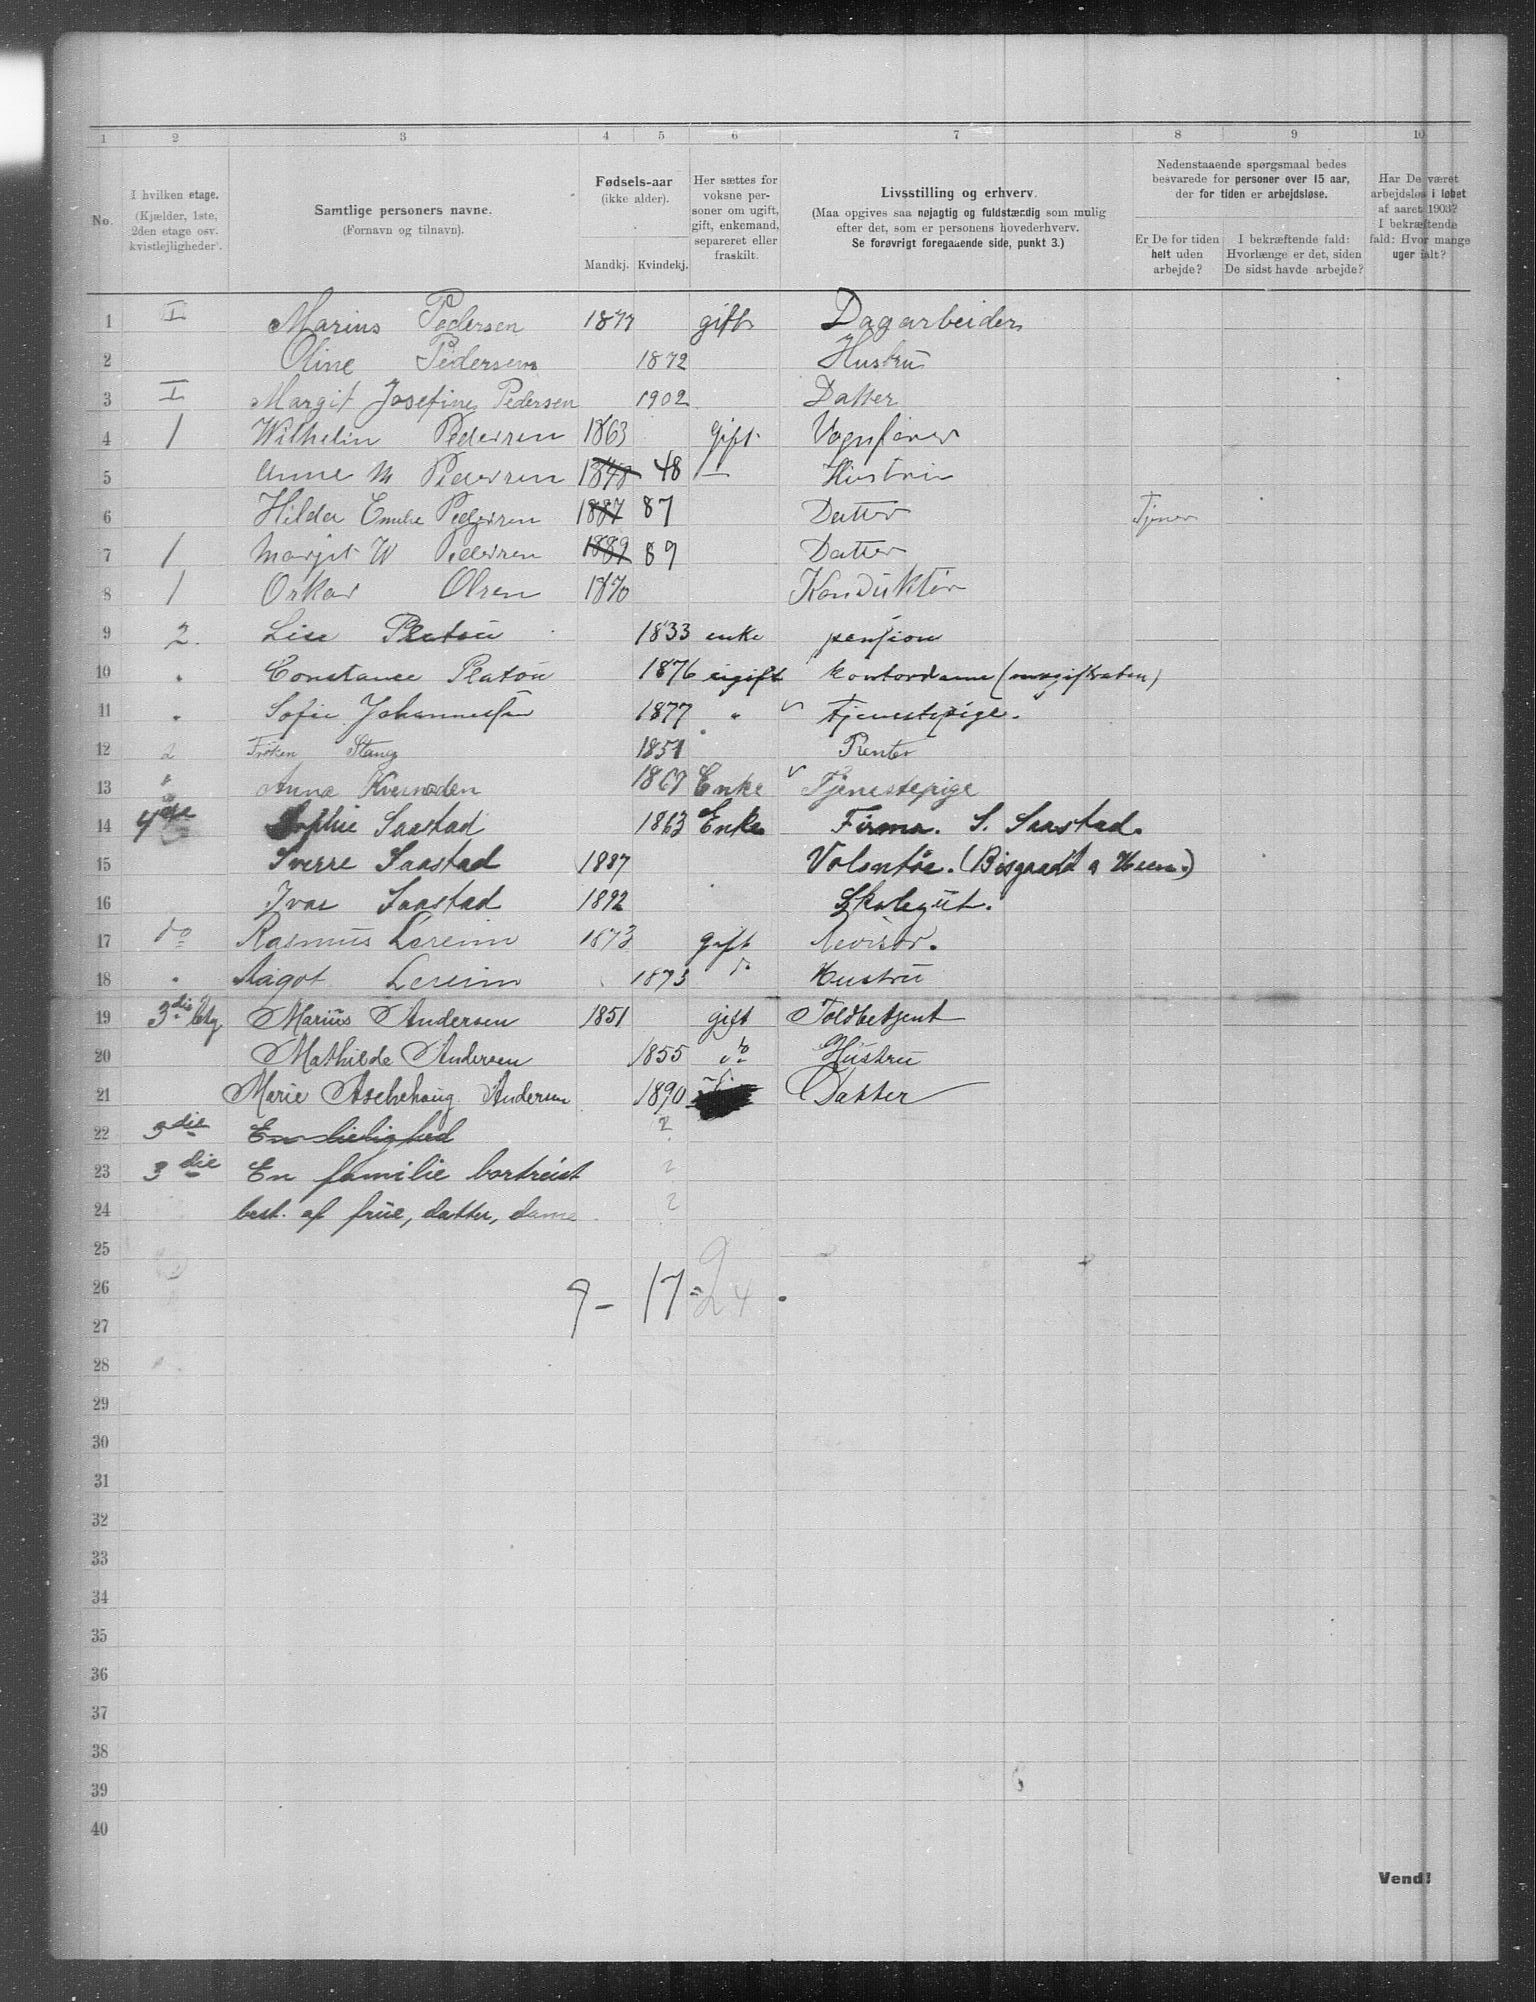 1 2 3 4 5 6 7 8 9 10
No.
I hvilken etage.
(Kjælder, 1ste,
2den etage osv.
kvistlejligheder).
Samtlige personers navne.
(Fornavn og tilnavn).
Fødsels-aar
(ikke alder).
Mandkj. Kvindekj.
Her sættes for
voksne per-
soner om ugift,
gift, enkemand,
separeret eller
fraskilt.
Livsstilling og erhverv.
(Maa opgives saa nøjagtig og fuldstændig som mulig
efter det, som er personens hovederhverv.
Se forøvrigt foregaaende side, punkt 3.)
Nedenstaaende spørgsmaal bedes
besvarede for personer over 15 aar,
der for tiden er arbejdsløse.
Er De for tiden
helt uden
arbejde?
I bekræftende fald:
Hvorlænge er det, siden
De sidst havde arbejde?
Har De været
arbejdsløs i løbet
af aaret 1903?
I bekræftende
fald: Hvor mange
uger ialt?
1 I Marius Pedersen 1877 gift Dagarbeider
2 Oline Pedersen 1872 Hustru
3 I Margit Josefine Pedersen 1902 Datter
4 1 Wilhelm Pedersen 1863 gift Vognfører
5 Anne M Pedersen 1848 48 — Hustru
6 Hilda Emilie Pedersen 1887 87 Datter Tjener
7 1 Margit W Pedersen 1889 89 Datter
8 1 Oskar Olsen 1870 Konduktør
9 2. Lise Platou 1833 enke pension
10 " Constance Platou 1876 ugift kontordame (magistraten)
11 " Sofie Johannessen 1877 " Tjenestepige.
12 2 Frøken Stang 1851 Renter
13 " Anna Kvernoden 1869 Enke Tjenestepige
14 4de Sophie Saastad 1863 Enke Firma. S. Saastad.
15 Sverre Saastad 1887 Volontør. (Bisgaard & Heen.)
16 Ivar Saastad 1892 Skolegut.
17 do Rasmus Lereim 1873 gift Revisor.
18 " Aagot Lereim 1873 do Hustru
19 3die Etg. Marius Andersen 1851 gift Toldbetjent
20 Mathilde Andersen 1855 do Hustru
21 Marie Aschehoug Andersen 1890 Datter
22 3die En leilighed 2
23 3die En familie bortreist 2
24 best. af frue, datter, dame. 2
25
26 9 - 17 = 24
27
28
29
30
31
32
33
34
35
36
37
38
39
40
Vend!